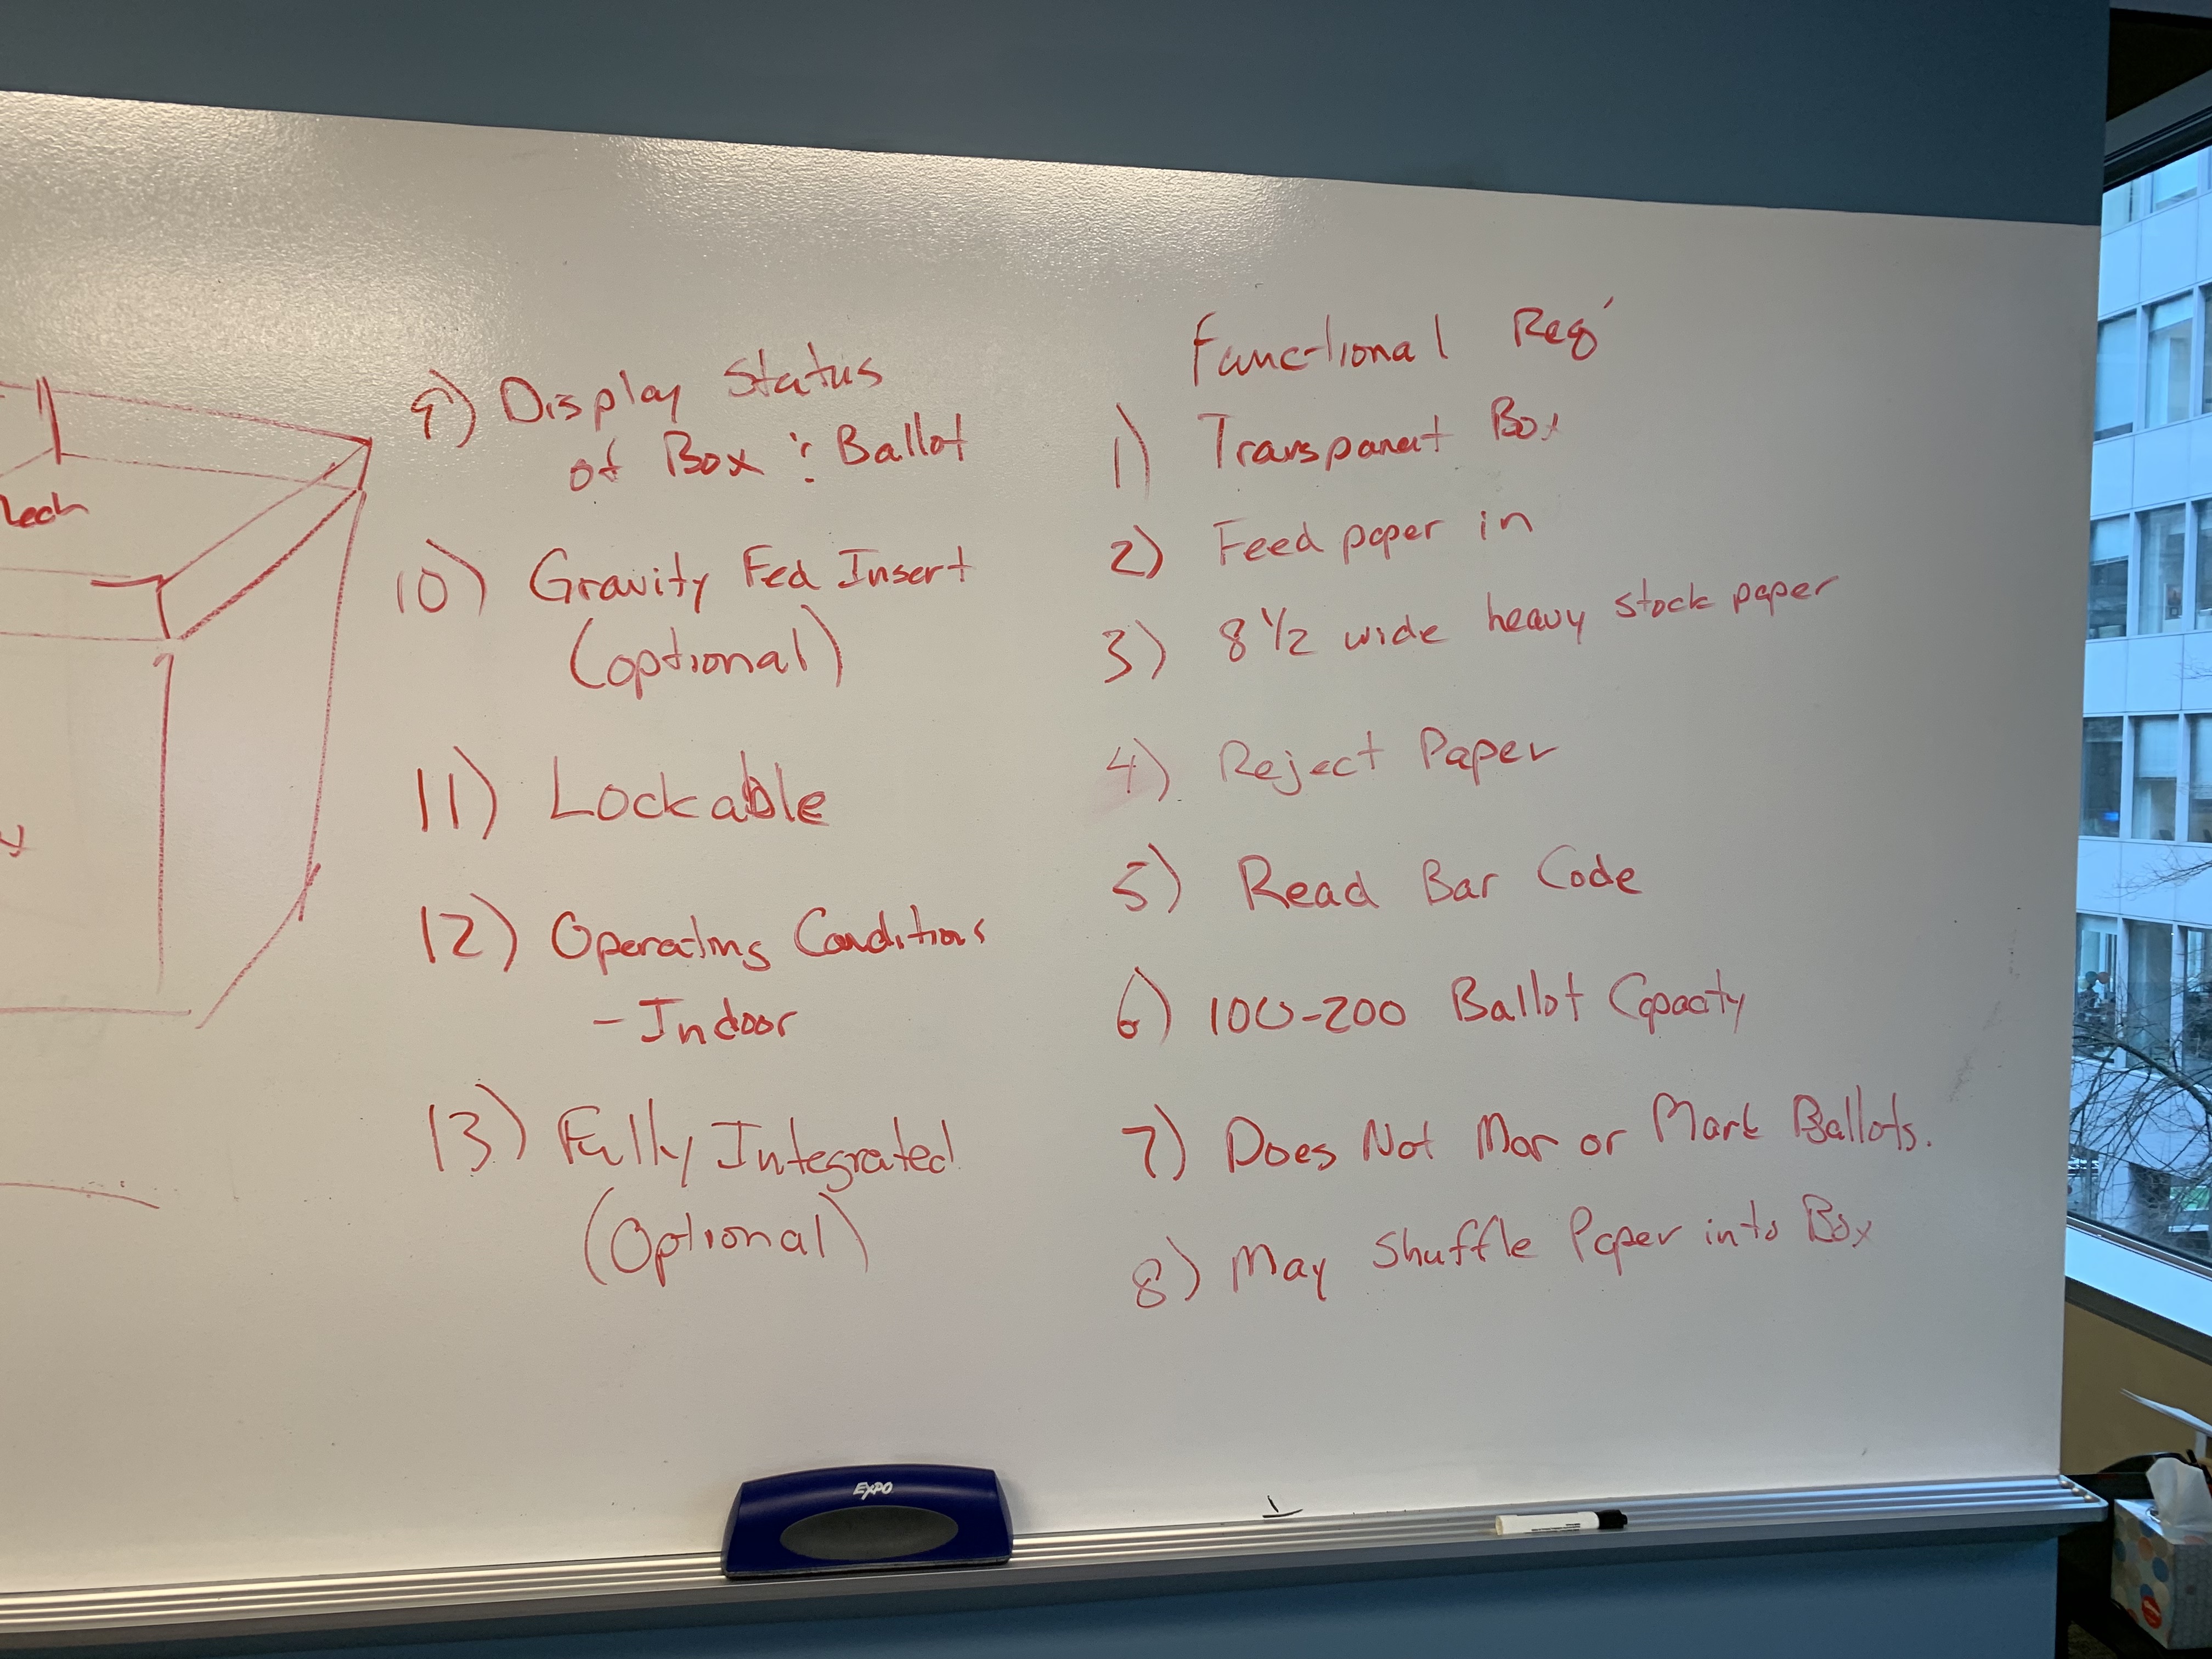 Functional Req'
1) Transparent Box
2) Feed paper in
3) 8 1/2 wide heavy stock paper
4) Reject Paper
5) Read Bar Code
6) 100-200 Ballot Capacity
7) Does Not Mar or Mark Ballots.
8) May Shuffle Paper into Box
9) Display Status
of Box & Ballot
10) Gravity Fed Insert
(optional)
11) Lockable
12) Operating Conditions
- Indoor
13) Fully Integrated
(Optional)
EXPO